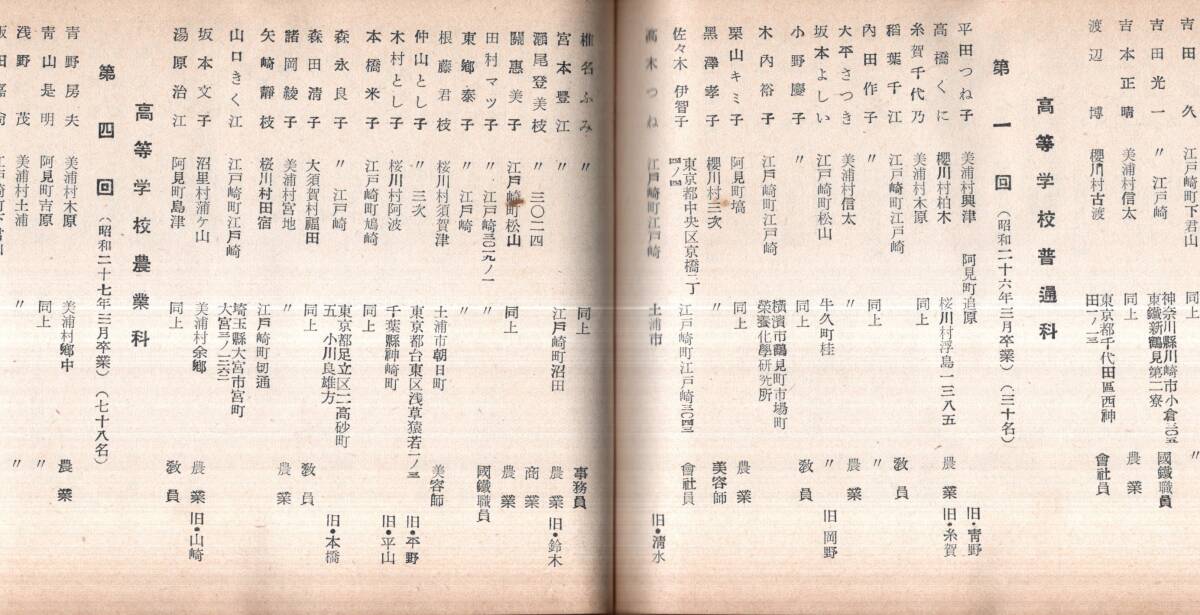 田 久 江戸崎町下君山 同上 〃
吉田光一 〃 江戸崎 神奈川縣川崎市小倉三〇五 東鐵新鶴見第二寮 國鐵職員
吉本正晴 美浦村信太 同上 農業
渡辺 博 櫻川村古渡 東京都千代田區西神田一ノ三 會社員
高等学校普通科
第一回(昭和二十六年三月卒業)(三十名)
平田つね子 美浦村興津 阿見町追原 旧・靑野
高橋くに 櫻川村柏木 桜川村浮島一三八五 農業 旧・糸賀
糸賀千代乃 美浦村木原 同上
稲葉千江 江戸崎町江戸崎 教員
內田作子 〃 同上 〃
大平さつき 美浦村信太 〃 農業
坂本よしい 江戸崎町松山 牛久町桂 〃 旧・岡野
小野慶子 〃 同上 敎員
木內裕子 江戸崎町江戸崎 横濱市鶴見町市場町 榮養化學研究所
栗山キミ子 阿見町塙 同上 農業
黑澤孝子 櫻川村三次 〃 美容師
佐々木伊智子 東京都中央区京橋二丁四ノ四 江戸崎町江戸崎三〇四三 會社員
髙木つね 江戸崎町江戸崎 土浦市 旧・淸水
椎名ふみ 〃 同上 事務員
宮本豐江 〃 江戸崎町沼田 農業 旧・鈴木
瀬尾登美枝 〃 三〇二四 商業
關惠美子 江戸崎町松山 同上 農業
田村マツ子 〃 江戸崎三〇二九ノ一 國鐵職員
東鄕泰子 〃 江戸崎 〃
根藤君枝 桜川村須賀津 土浦市朝日町 美容師
仲山とし子 〃 三次 東京都台東区浅草猿若一ノ三 旧・平野
木村とし子 桜川村阿波 千葉縣神崎町 旧・平山
本橋米子 江戸崎町鳩崎 同上
森永良子 〃 江戸崎 東京都足立区二高砂町五 小川良雄方 旧・本橋
森田清子 大須賀村福田 同上 敎員
諸岡綾子 美浦村宮地 〃 農業
矢崎靜枝 桜川村田宿 江戸崎町切通
山口きく江 江戸崎町江戸崎 埼玉縣大宮市宮町大宮三ノ二六二
坂本文子 沼里村蒲ケ山 美浦村余鄕 農業 旧・山崎
湯原治江 阿見町島津 同上 敎員
高等学校農業科
第四回(昭和二十七年三月卒業)(七十八名)
青野房夫 美浦村木原 美浦村鄕中 農業
靑山是明 阿見町吉原 同上 〃
浅野茂 美浦村土浦 〃 〃
飯田嘉 江戸崎町下君山